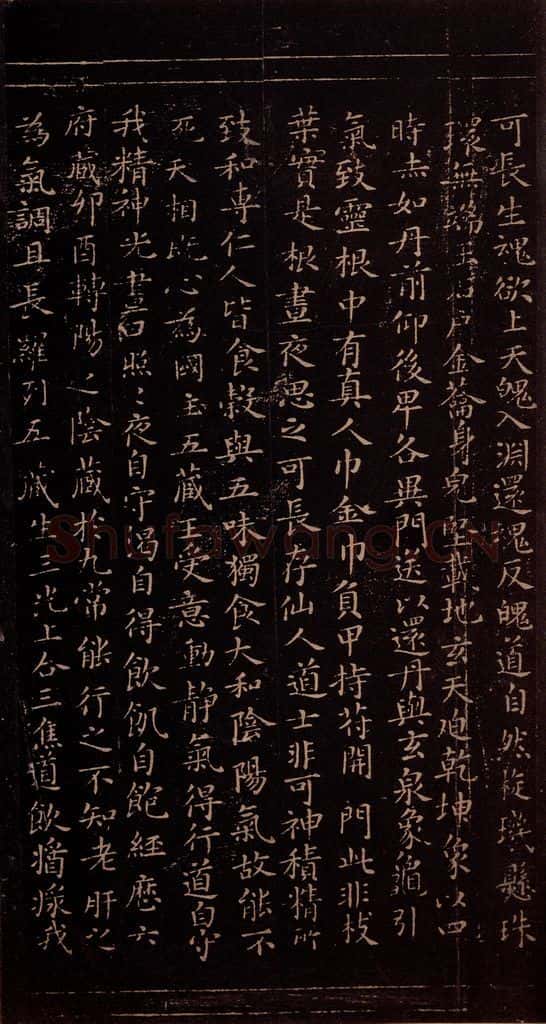 可長生魂欲上天魄入淵還魂反魄道自然旋璣懸珠
環無端玉戶金籥身皃堅載地玄天迫乾坤象以四
時赤如丹前仰後卑各異門送以還丹與玄泉象龜引
氣致靈根中有真人巾金巾負甲持符開門此非枝
葉實是根晝夜思之可長存仙人道士非可神積精所
致和專仁人皆食穀與五味獨食大和陰陽氣故能不
死天相既心為國主五藏王受意動靜氣得行道自守
我精神光晝日照二夜自守渴自得飲飢自飽經歷六
府藏卯酉轉陽之陰藏於九常能行之不知老肝之
為氣調且長羅列五藏生三光上合三焦道飲漿我
Shufawang.CN